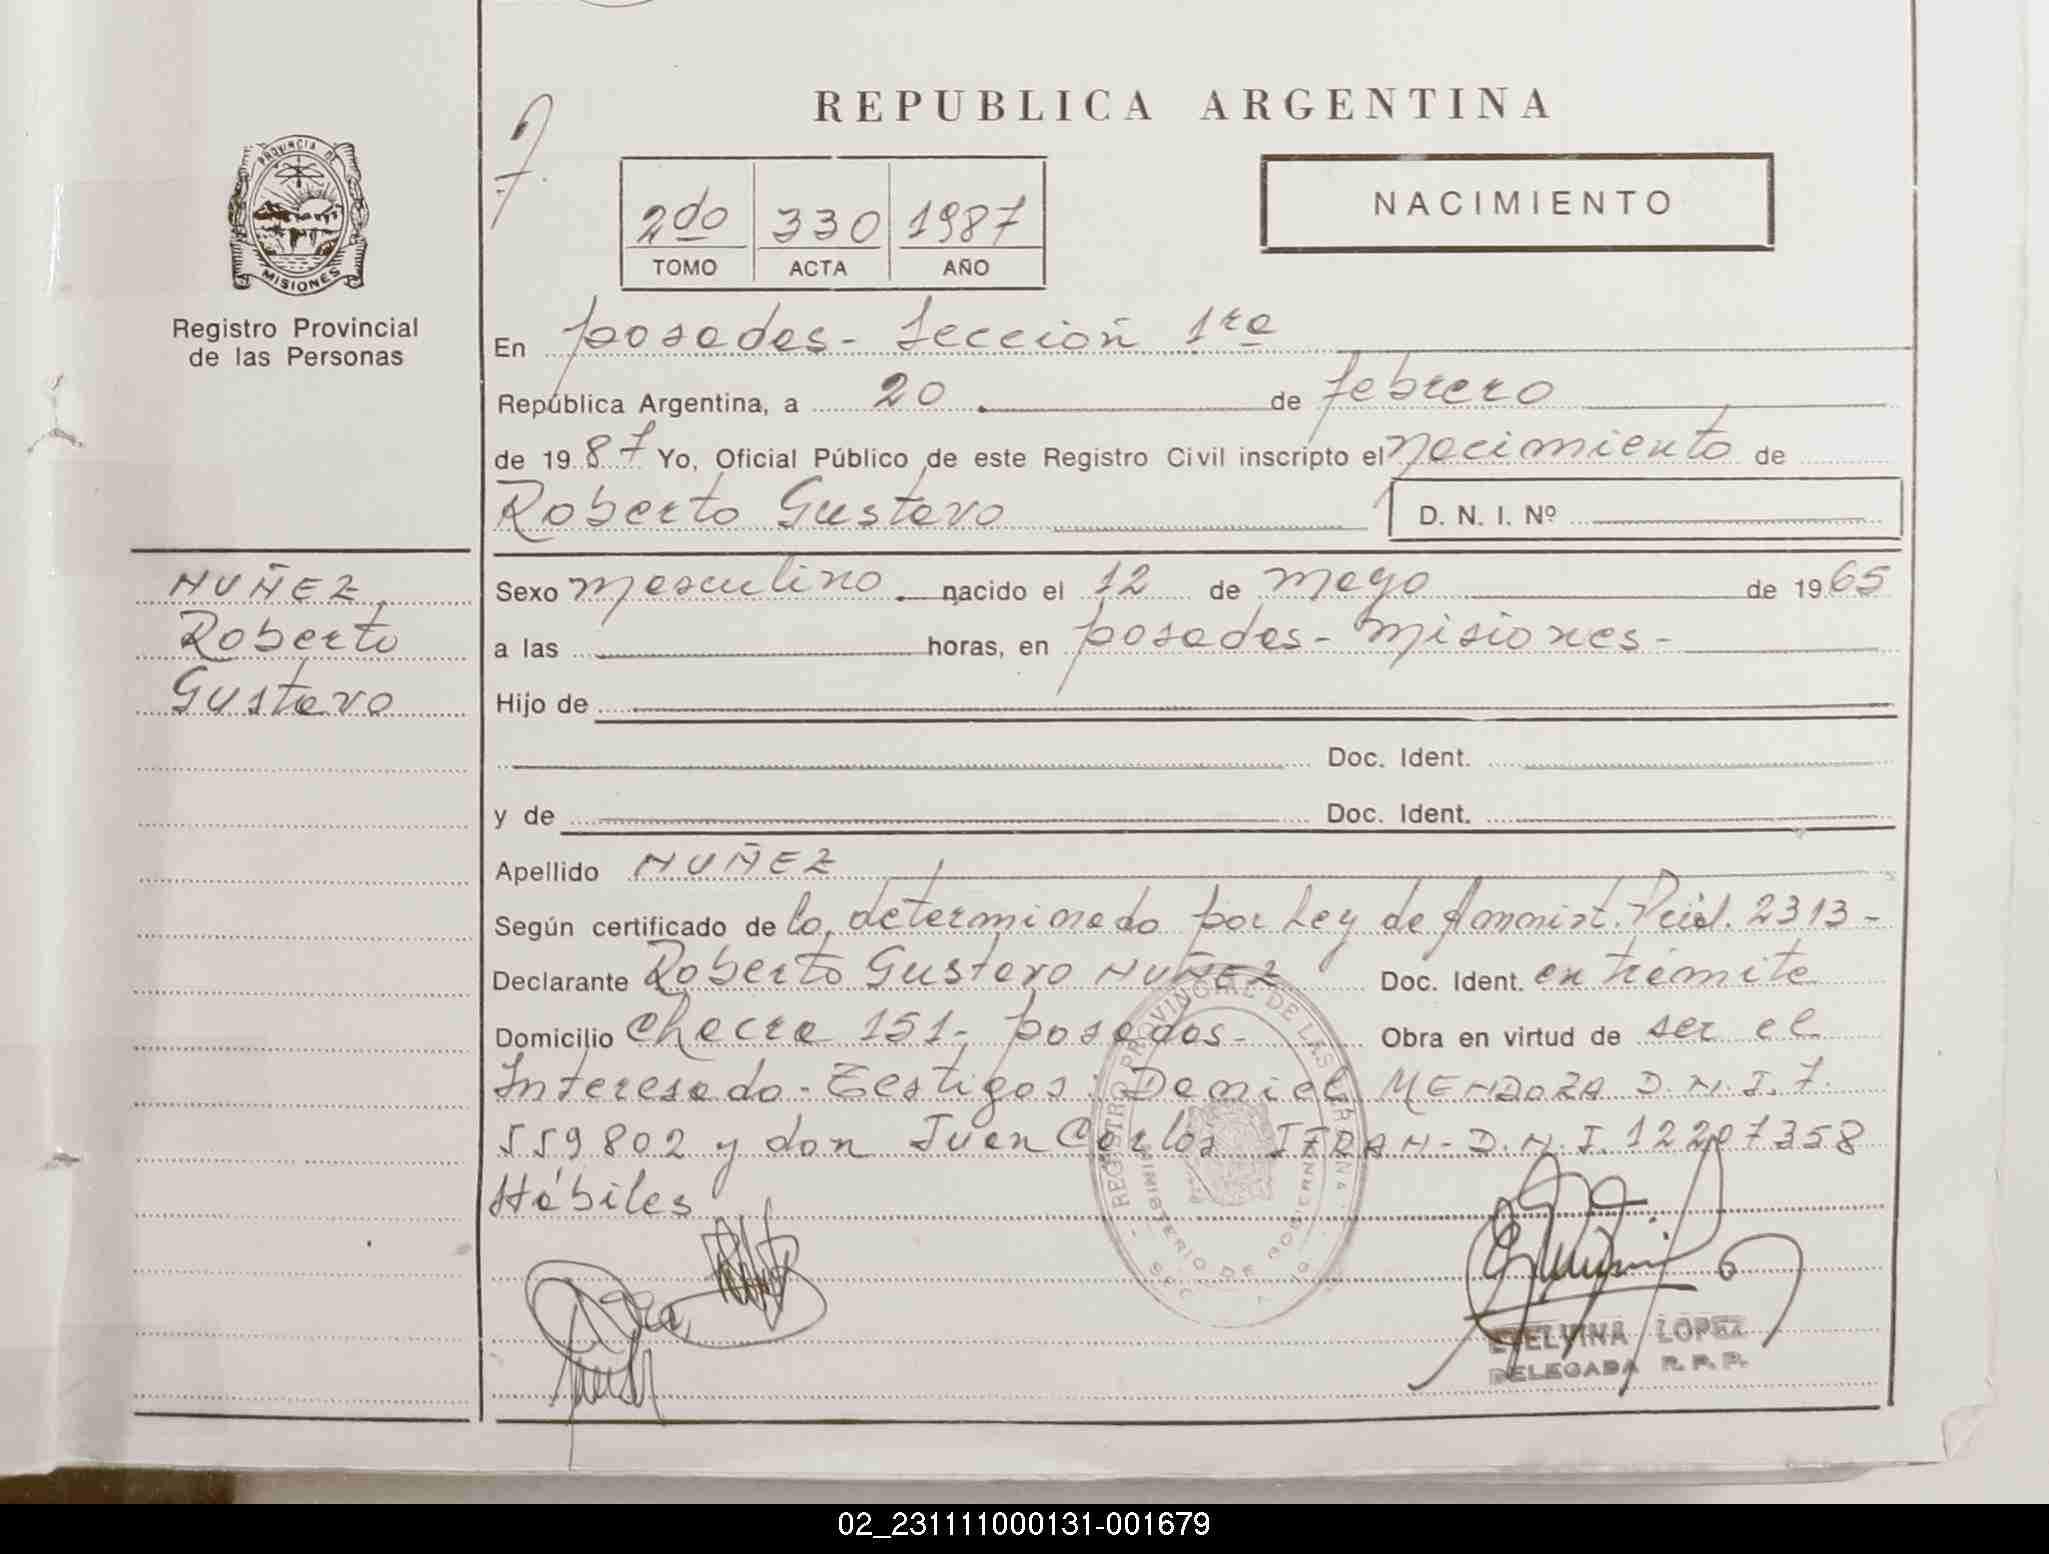 REPUBLICA ARGENTINA
NACIMIENTO
PROVINCIA DE
MISIONES
Registro Provincial
de las Personas
2do 330 1987
TOMO ACTA AÑO
En Posadas - Sección 1ra
República Argentina, a 20 de febrero
de 1987 Yo, Oficial Público de este Registro Civil inscripto el nacimiento de
Roberto Gustavo D. N. I. Nº
NUÑEZ
Roberto
Gustavo
Sexo masculino nacido el 12 de mayo de 1965
a las horas, en Posadas - Misiones -
Hijo de
Doc. Ident.
y de Doc. Ident.
Apellido NUÑEZ
Según certificado de lo determinado por Ley de Amnist. 2313 -
Declarante Roberto Gustavo NUÑEZ Doc. Ident. en trámite
Domicilio Chacra 151 - Posadas - Obra en virtud de ser el
Interesado - Testigos: Daniel MENDOZA D.N.I. 7.
559802 y don Juan Carlos D.N.I. 12207358
Hábiles
REGISTRO PROVINCIAL DE LAS PERSONAS
MINISTERIO DE GOBIERNO
ETELVINA LOPEZ
DELEGADA R. P. P.
02_231111000131-001679